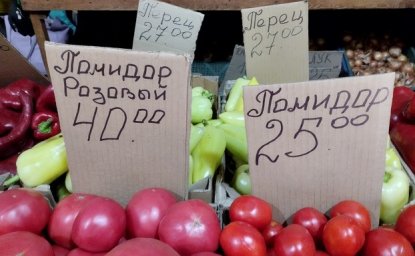 Перец
27.00
Перец
27.00
ЛУК
Помидор
Розовый
40 00
Помидор
25.00